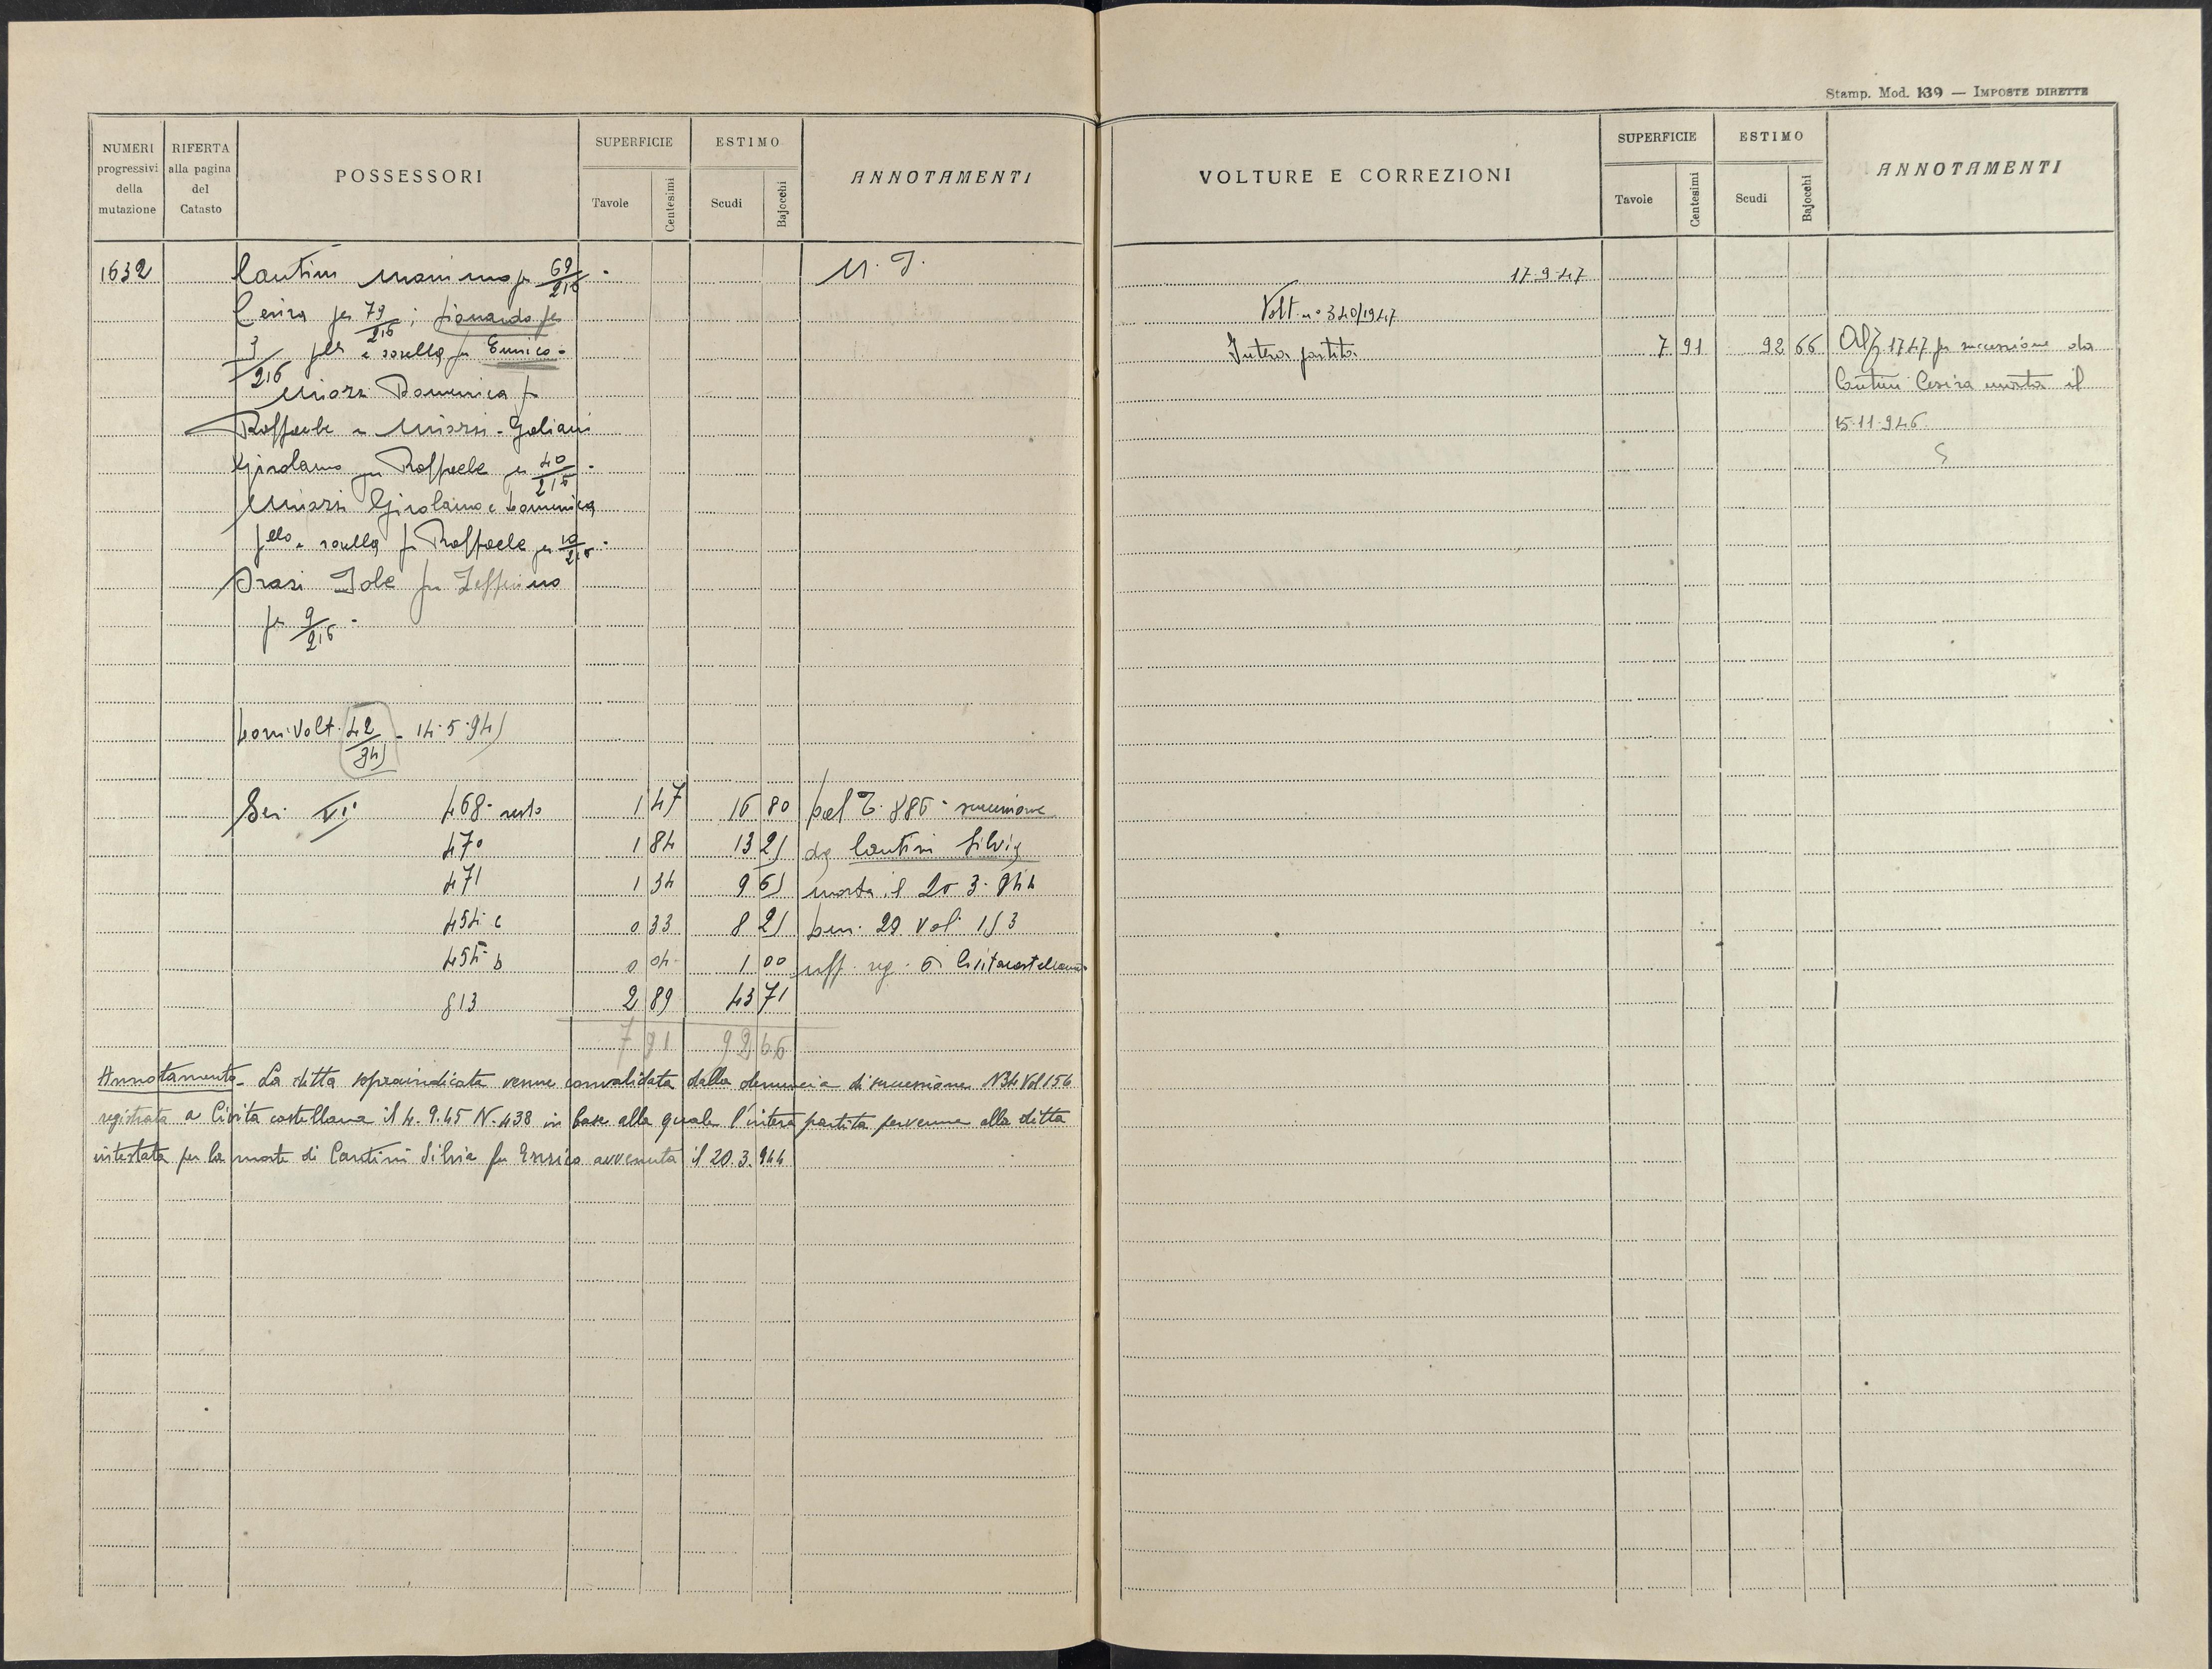 Stamp. Mod. 139 — IMPOSTE DIRETTE
NUMERI progressivi della mutazione
RIFERTA alla pagina del Catasto
POSSESSORI
SUPERFICIE
Tavole
Centesimi
ESTIMO
Scudi
Bajocchi
ANNOTAMENTI
1632 Cantini Massimo per 69/216 - M. T.
Cesira per 79/216; Leonardo per
3/216 flli e sorella fu Enrico -
Miozzi Domenica fu
Raffaele e Miozzi - Galiani
Girolamo fu Raffaele per 40/216 -
Miozzi Girolamo e Domenica
fllo e sorella fu Raffaele per 10/216 -
Orazi Iole fu Zeffirino
per 9/216 -
Dom. Volt. 42/941 - 14.5.941
Sez. VI 468 resto 1 47 16 80 Dal T. 886 - successione
470 1 84 13 21 da Cantini Silvia
471 1 34 9 61 morta il 20 3. 944
454 c 0 33 8 21 Den. 29 Vol. 153
455 b 0 04 1 00 uff. reg. di Civitacastellana
813 2 89 43 71
7 91 92 66
Annotamento - La ditta sopraindicata venne convalidata dalla denuncia di successione N34 Vol 156
registrata a Civita castellana il 4.9.45 N. 438 in base alla quale l'intera partita pervenne alla ditta
intestata per la morte di Cantini Silvia fu Enrico avvenuta il 20.3.944
VOLTURE E CORREZIONI
SUPERFICIE
Tavole
Centesimi
ESTIMO
Scudi
Bajocchi
ANNOTAMENTI
17.9.47
Volt. n° 340/1947
Intera partita 7 91 92 66 Alla 1747 per successione da
Cantini Cesira morta il
15.11.946